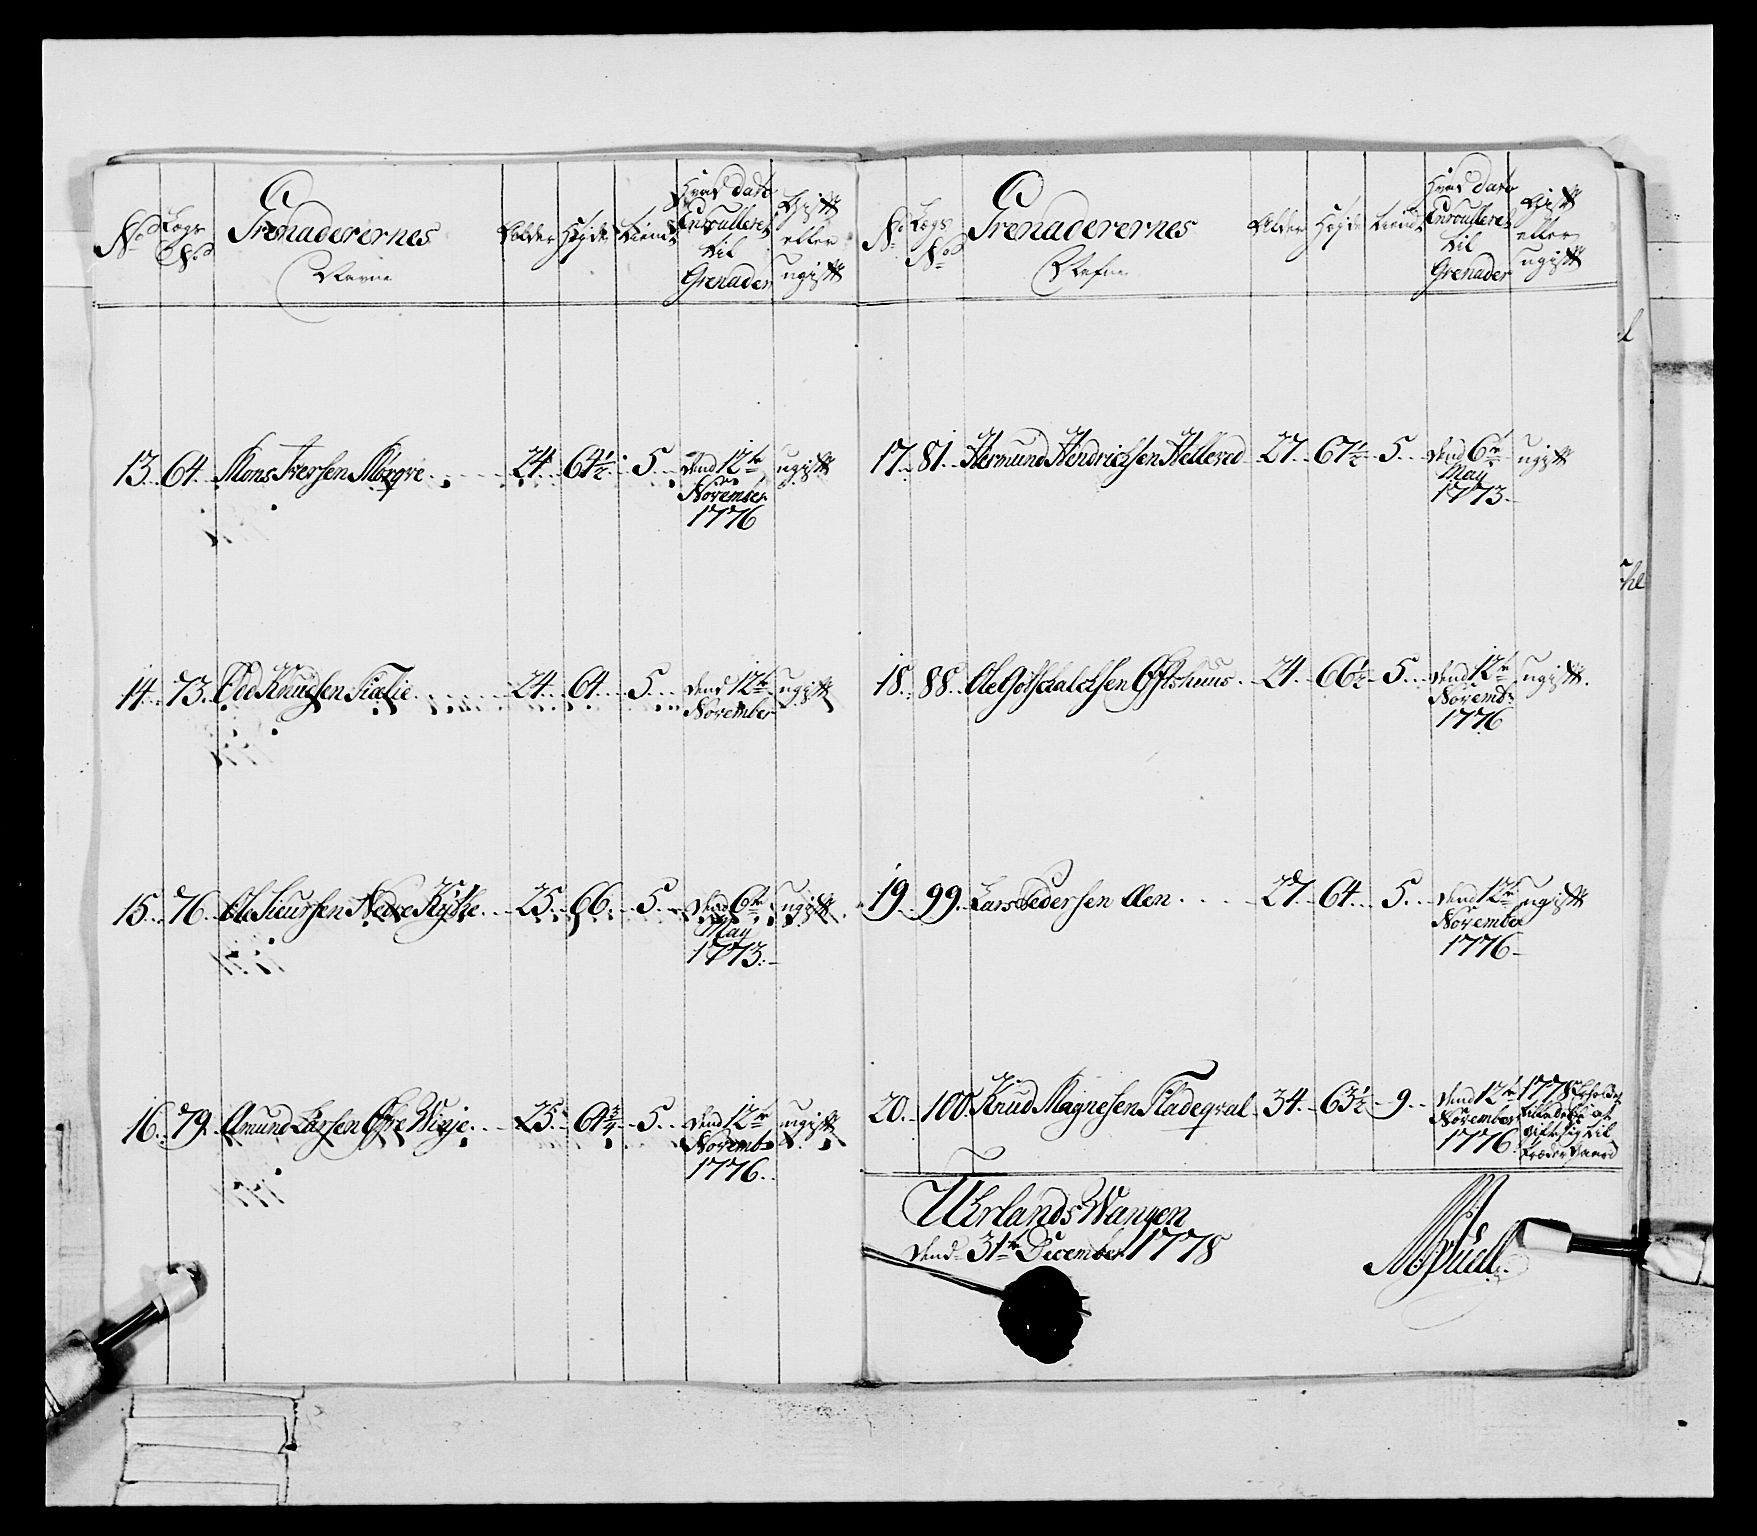 No Lægs No Grenaderernes Navne Alder Høyde tient Hvad dato Enroulleret til Grenader Gift eller ugift
13. 64. Mons Iversen Mørqve 24. 64½ 5. dend 12te November 1776 ugift
14. 73. Odd Knudsen Sielie 24. 64. 5. dend 12te November ugift
15. 76. Ole Siursen Nedre 25. 66. 5. den 6te May 1773. ugift
16. 79. Amund Larsen Øfre Winje 25. 64¾ 5. dend 12te Novembr 1776. ugift
No Lægs No Grenaderernes Nafne Alder Høyde tient Hvad dato Enroulleret til Grenader Gift eller ugift
17. 81. Hermund Hendrichsen Hellered 27. 67½ 5. dend 6te May 1773. ugift
18. 88. Ole Gotschalchsen 24. 66½ 5. dend 12te Novembr: 1776 ugift.
19. 99. Lars Pedersen Aen 27. 64. 5. dend 12te November 1776 ugift
20. 100. Knud Magnesen Fladeqval 34. 63½ 9. dend 12te November 1776. 1778 at gifte sig til
Urlands Wangen
dend 31te December 1778